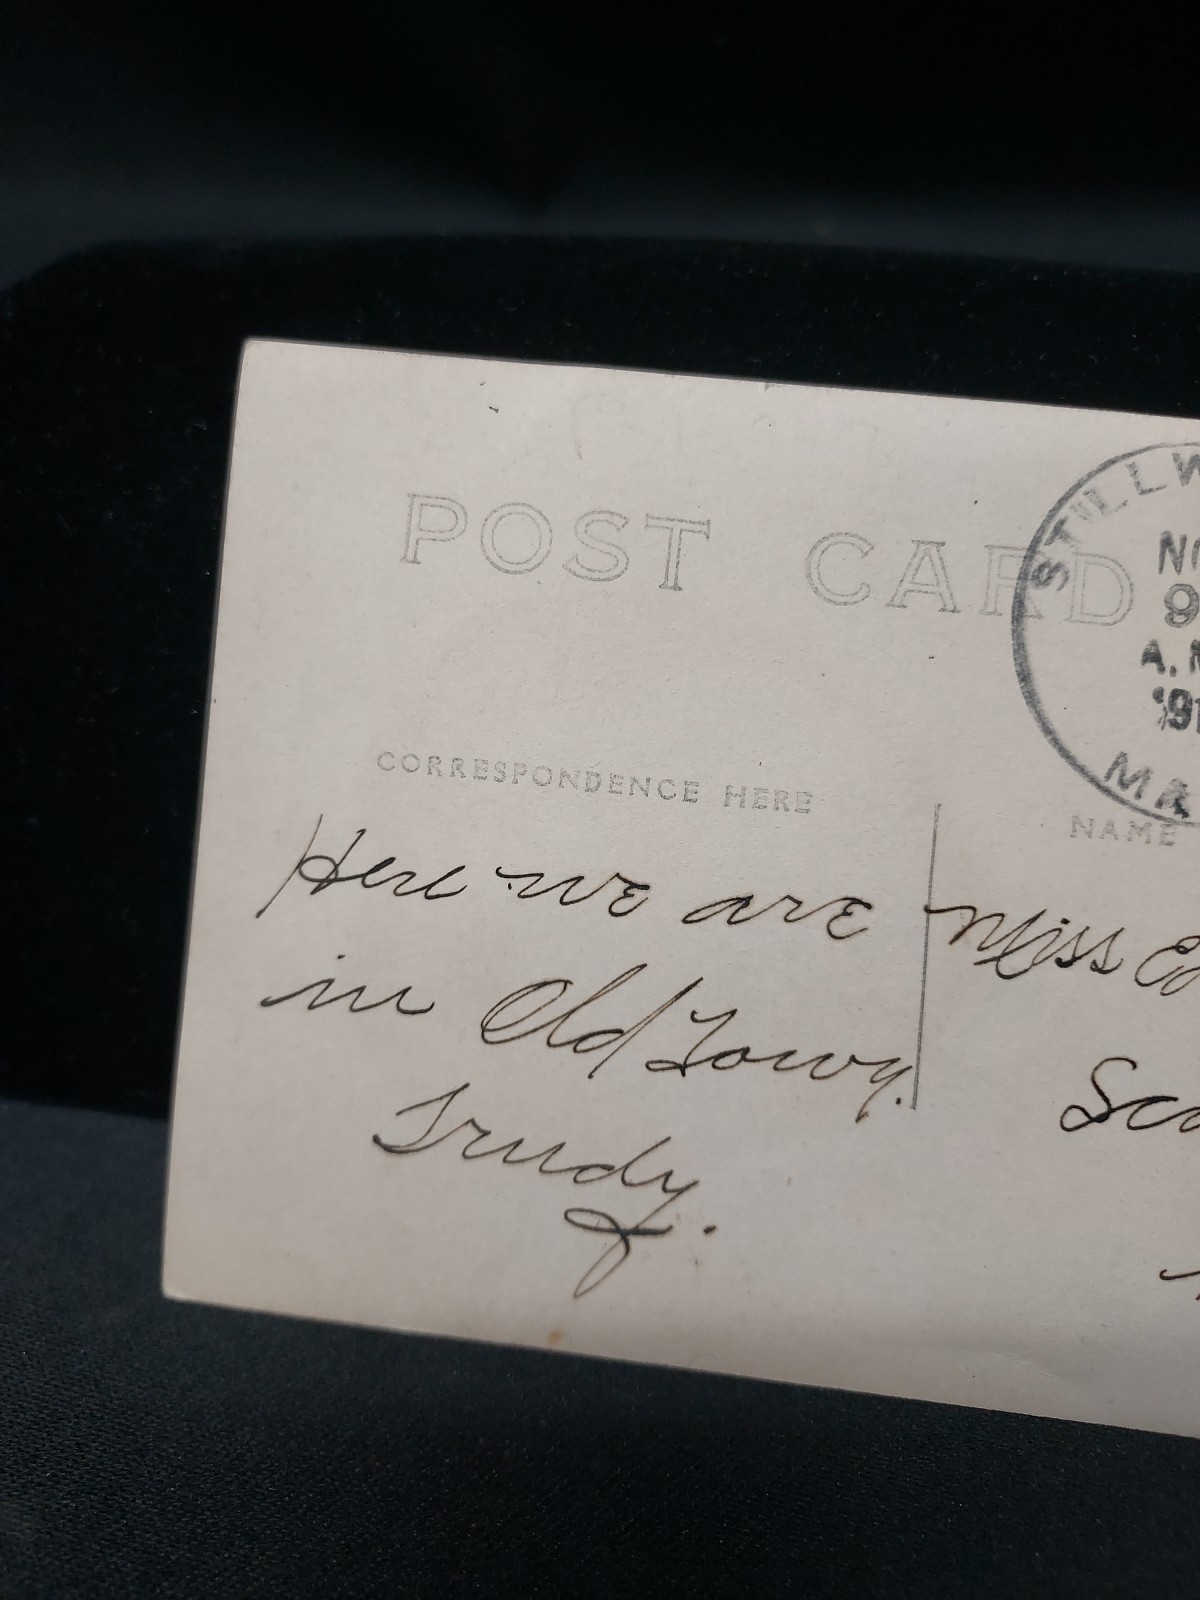 POST CARD
STILLW
NO
9
A. M
191
MA
CORRESPONDENCE HERE
NAME
Here we are
in Old Town.
Trudy.
Miss Ed
Sca